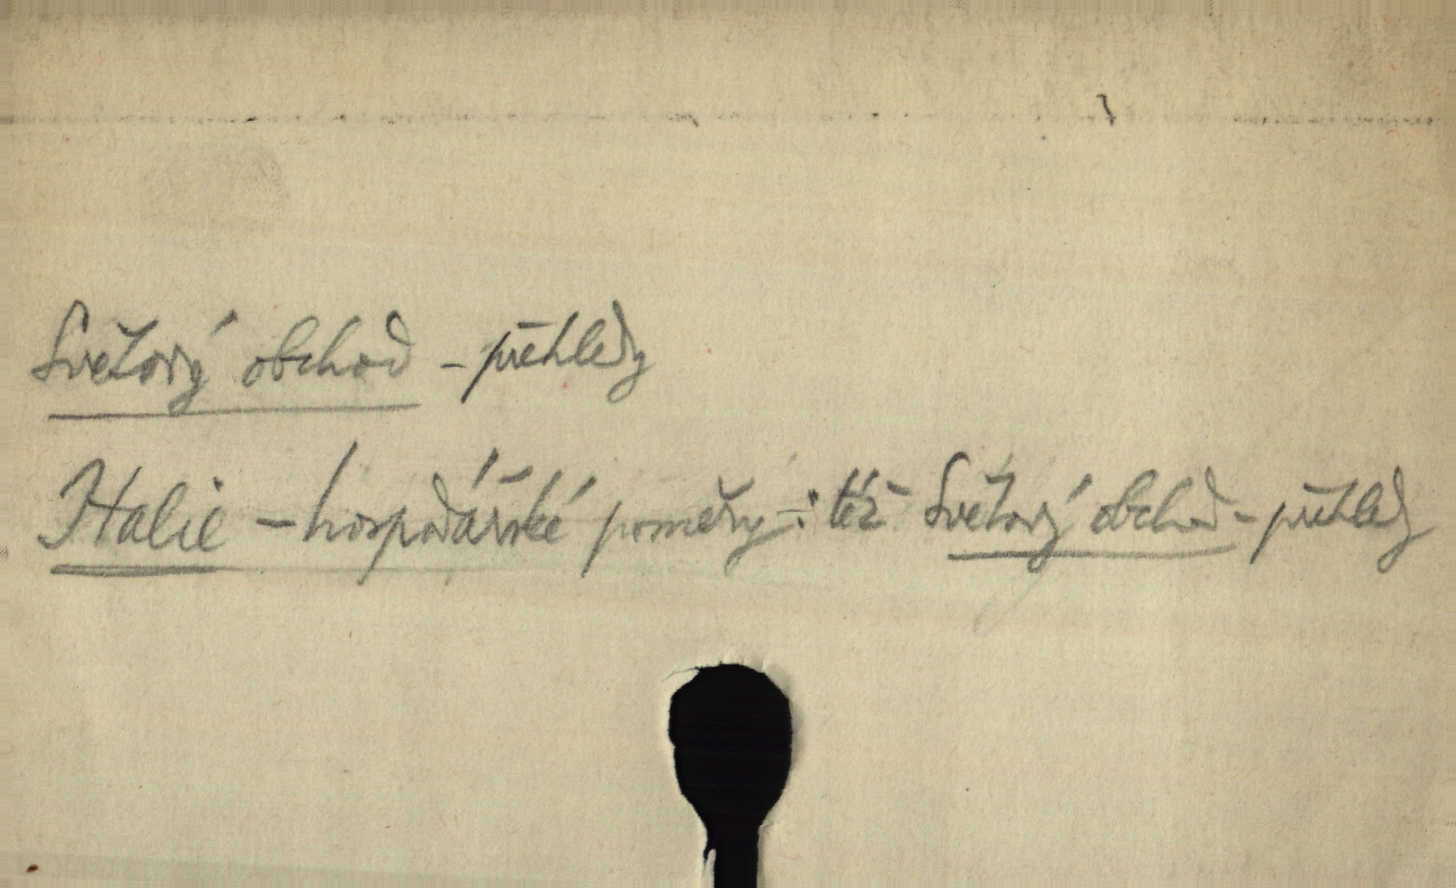 Světový obchod - přehledy
Italie - hospodářské poměry : též Světový obchod - přehledy